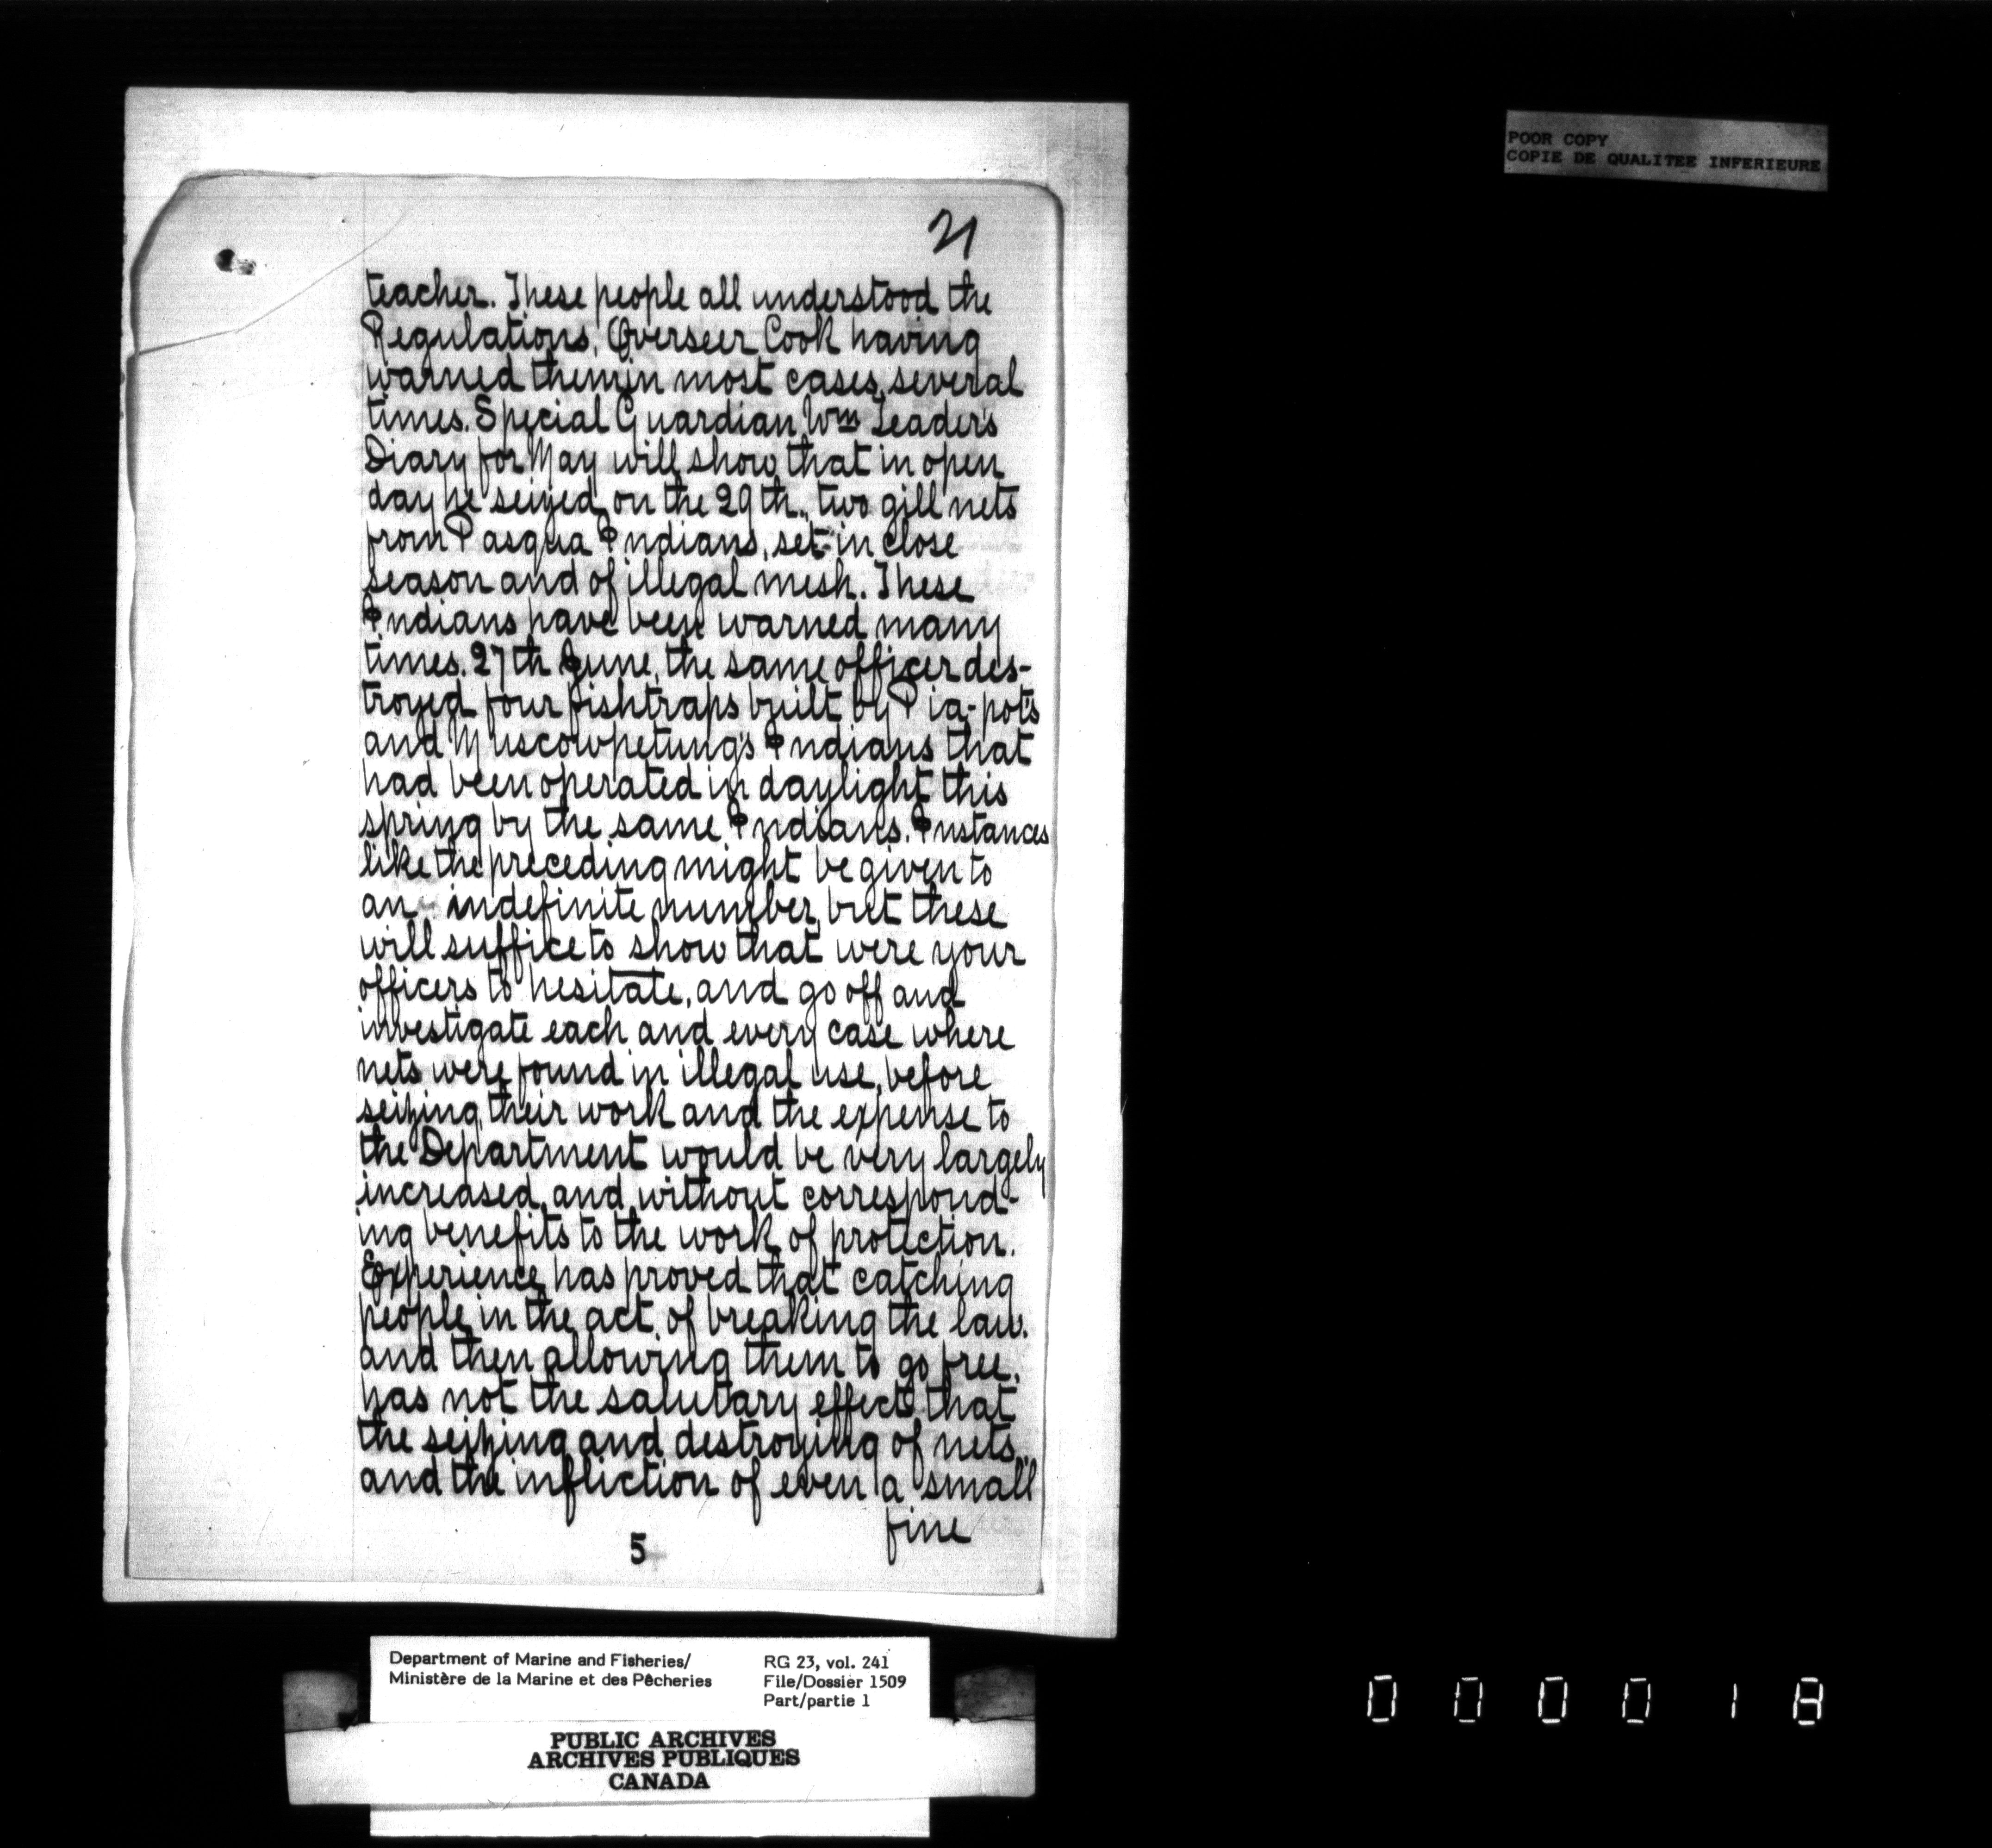 POOR COPY
COPIE DE QUALITEE INFERIEURE
21
teacher. These people all understood the
Regulations, Overseer Cook having
warned them in most cases, several
times. Special Guardian Wm Leader's
Diary for May will show that in open
day he seized on the 29th., two gill nets
from Pasqua Indians, set in close
season and of illegal mesh. These
Indians have been warned many
times. 27th June, the same officer des-
troyed four fishtraps built by Pia-pot's
and Muscowpetung's Indians that
had been operated in daylight this
spring by the same Indians. Instances
like the preceding might be given to
an indefinite number, but these
will suffice to show that were your
officers to hesitate, and go off and
investigate each and every case where
nets were found in illegal use, before
seizing, their work and the expense to
the Department would be very largely
increased, and without correspond-
ing benefits to the work of protection.
Experience has proved that catching
people in the act of breaking the law.
and then allowing them to go free,
has not the salutary effect that
the seizing and destroying of nets,
and the infliction of even a small
fine
5
Department of Marine and Fisheries/
Ministère de la Marine et des Pêcheries
RG 23, vol. 241
File/Dossier 1509
Part/partie 1
PUBLIC ARCHIVES
ARCHIVES PUBLIQUES
CANADA
000018